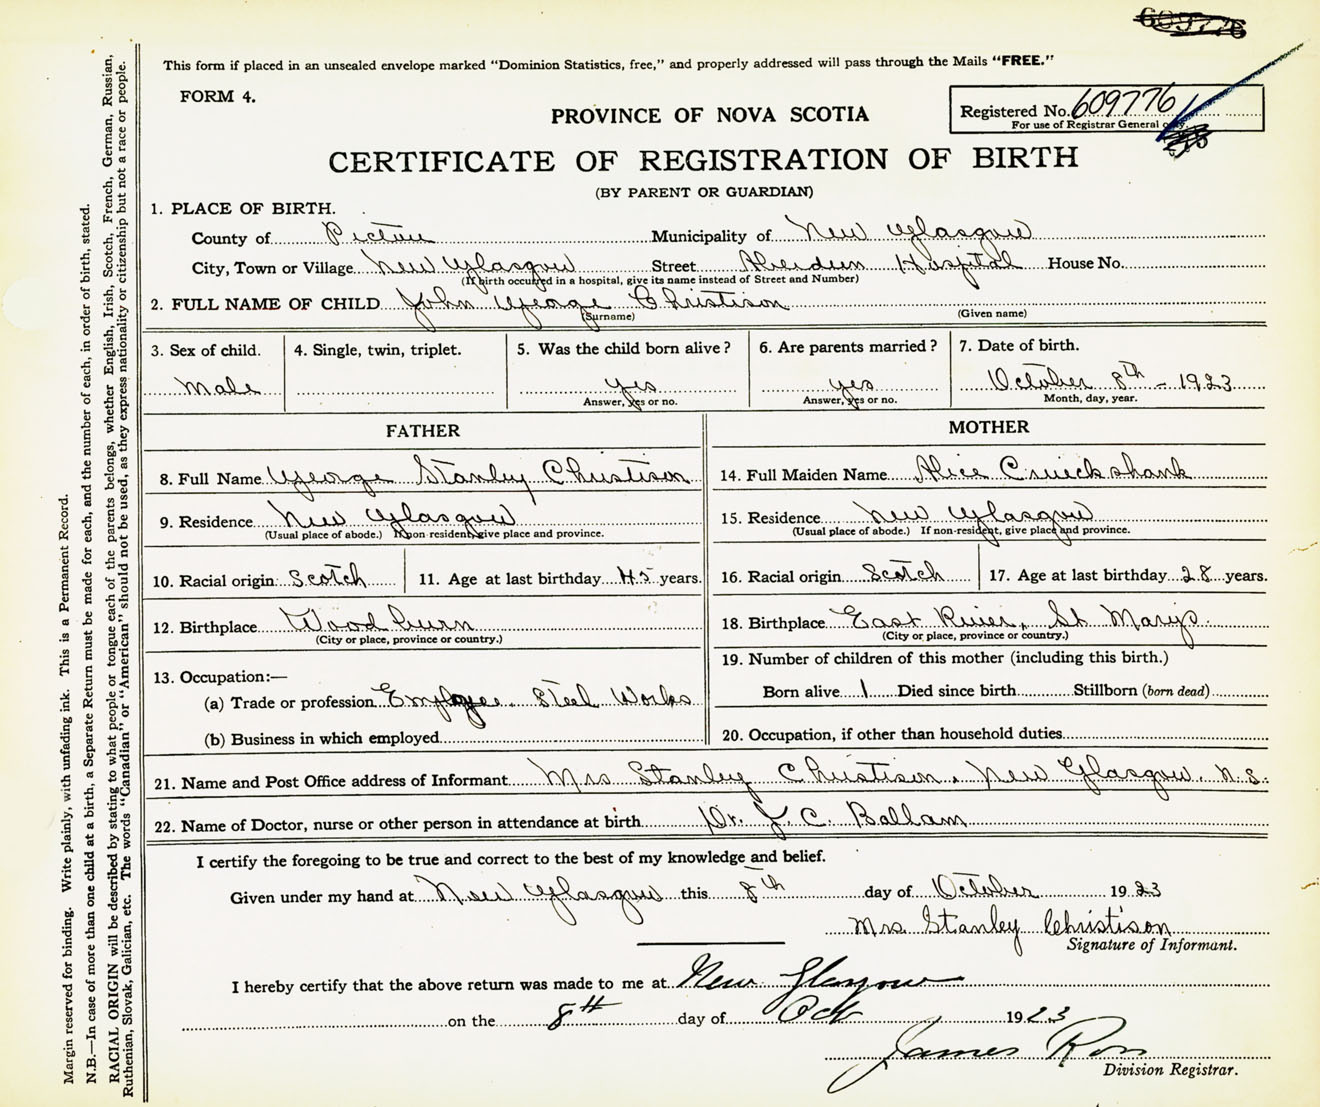 This form if placed in an unsealed envelope marked "Dominion Statistics, free," and properly addressed will pass through the Mails "FREE."
FORM 4.
PROVINCE OF NOVA SCOTIA
Registered No. 609776
For use of Registrar General
CERTIFICATE OF REGISTRATION OF BIRTH
(BY PARENT OR GUARDIAN)
1. PLACE OF BIRTH.
County of Pictou Municipality of New Glasgow
City, Town or Village New Glasgow Street Aberdeen Hospital House No.
(If birth occurred in a hospital, give its name instead of Street and Number)
2. FULL NAME OF CHILD John George Christison
(Surname) (Given name)
3. Sex of child. 4. Single, twin, triplet. 5. Was the child born alive? 6. Are parents married? 7. Date of birth.
Male yes yes October 8th - 1923
Answer, yes or no. Answer, yes or no. Month, day, year.
FATHER MOTHER
8. Full Name George Stanley Christison 14. Full Maiden Name Alice Cruickshank
9. Residence New Glasgow 15. Residence New Glasgow
(Usual place of abode.) If non-resident, give place and province. (Usual place of abode.) If non-resident, give place and province.
10. Racial origin Scotch 11. Age at last birthday 45 years. 16. Racial origin Scotch 17. Age at last birthday 28 years.
12. Birthplace Woodburn 18. Birthplace East River, St Marys.
(City or place, province or country.) (City or place, province or country.)
13. Occupation:— 19. Number of children of this mother (including this birth.)
(a) Trade or profession Employee. Steel Works Born alive 1 Died since birth Stillborn (born dead)
(b) Business in which employed 20. Occupation, if other than household duties
21. Name and Post Office address of Informant Mrs Stanley Christison, New Glasgow, N.S.
22. Name of Doctor, nurse or other person in attendance at birth Dr. J. C. Ballam
I certify the foregoing to be true and correct to the best of my knowledge and belief.
Given under my hand at New Glasgow this 8th day of October 1923
Mrs. Stanley Christison
Signature of Informant.
I hereby certify that the above return was made to me at New Glasgow
on the 8th day of Oct 1923
James Ross
Division Registrar.
Margin reserved for binding. Write plainly, with unfading ink. This is a Permanent Record.
N.B.—In case of more than one child at a birth, a Separate Return must be made for each, and the number of each, in order of birth, stated.
RACIAL ORIGIN will be described by stating to what people or tongue each of the parents belongs, whether English, Irish, Scotch, French, German, Russian,
Ruthenian, Slovak, Galician, etc. The words "Canadian" or "American" should not be used, as they express nationality or citizenship but not a race or people.